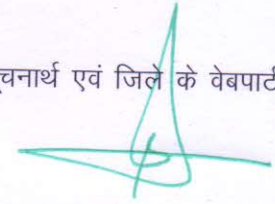 चनार्थ एवं जिले के वेबपार्ट